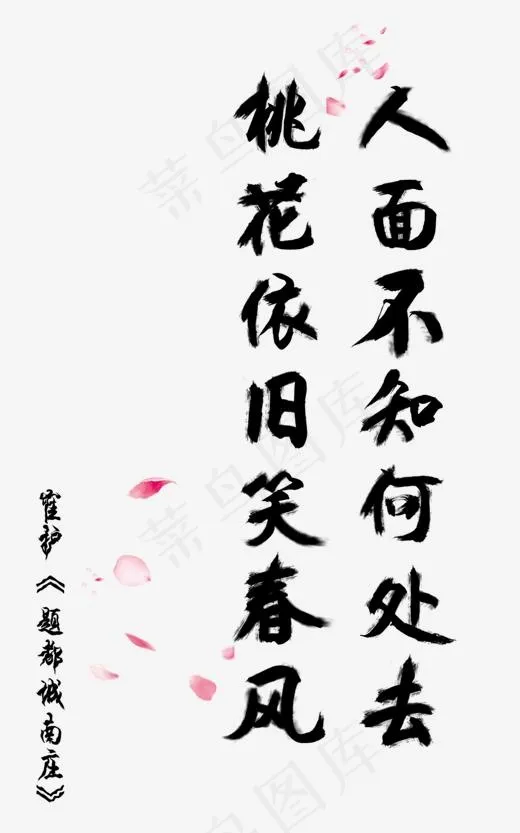 人面不知何处去
桃花依旧笑春风
崔护《题都城南庄》
菜鸟图库
菜鸟图库
菜鸟图库
菜鸟图库